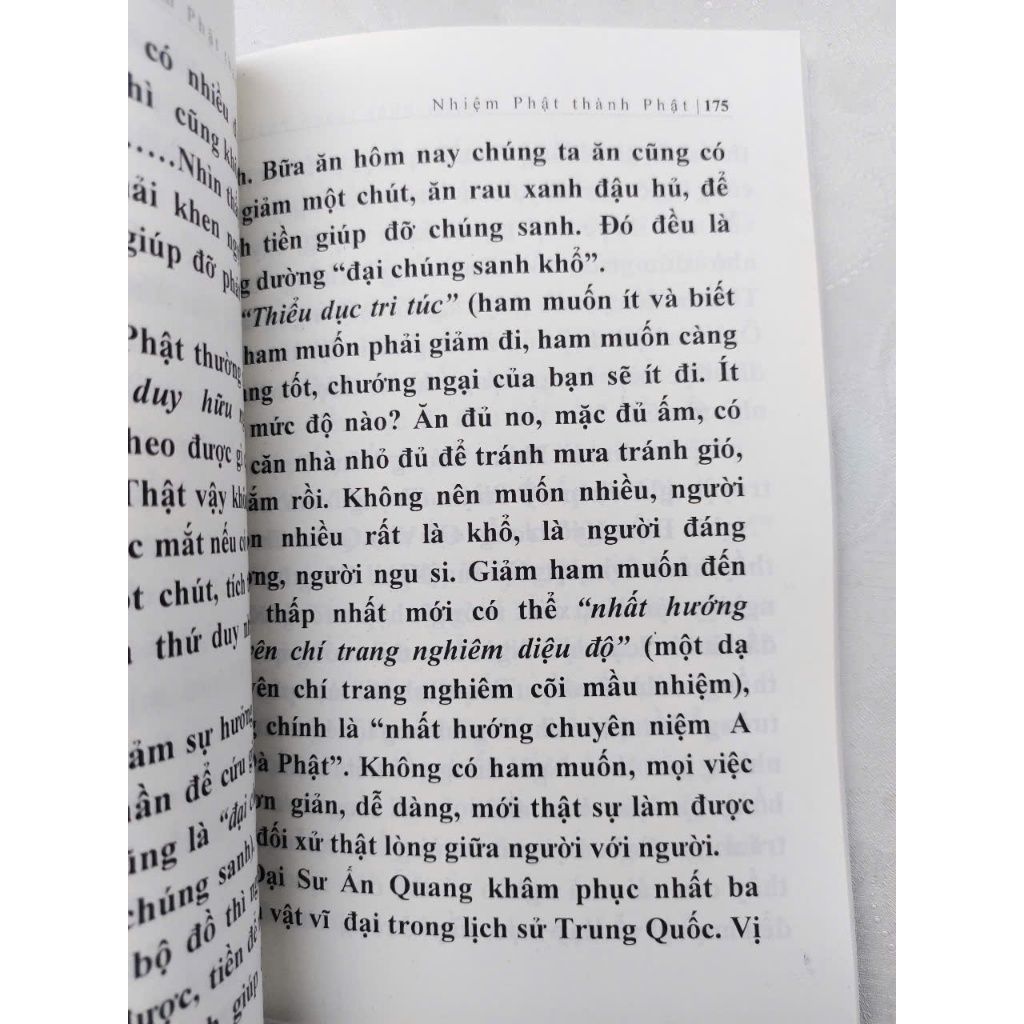 có nhiều
hì cũng
......Nhìn
ải khen
giúp đỡ
Phật thường
duy hữu
heo được
Thật vậy
c mắt nếu
t chút, tích
thứ duy
ảm sự hưởng
ần để cứu
ũng là “đại
chúng sanh)
bộ đồ thì
được, tiền để
giúp
Nhiệm Phật thành Phật | 175
h. Bữa ăn hôm nay chúng ta ăn cũng có
giảm một chút, ăn rau xanh đậu hủ, để
h tiền giúp đỡ chúng sanh. Đó đều là
g dường “đại chúng sanh khổ”.
“Thiểu dục tri túc” (ham muốn ít và biết
ham muốn phải giảm đi, ham muốn càng
ng tốt, chướng ngại của bạn sẽ ít đi. Ít
mức độ nào? Ăn đủ no, mặc đủ ấm, có
căn nhà nhỏ đủ để tránh mưa tránh gió,
ắm rồi. Không nên muốn nhiều, người
n nhiều rất là khổ, là người đáng
ng, người ngu si. Giảm ham muốn đến
thấp nhất mới có thể “nhất hướng
yên chí trang nghiêm diệu độ” (một dạ
yên chí trang nghiêm cõi mầu nhiệm),
chính là “nhất hướng chuyên niệm A
à Phật”. Không có ham muốn, mọi việc
ơn giản, dễ dàng, mới thật sự làm được
đối xử thật lòng giữa người với người.
Đại Sư Ấn Quang khâm phục nhất ba
vật vĩ đại trong lịch sử Trung Quốc. Vị